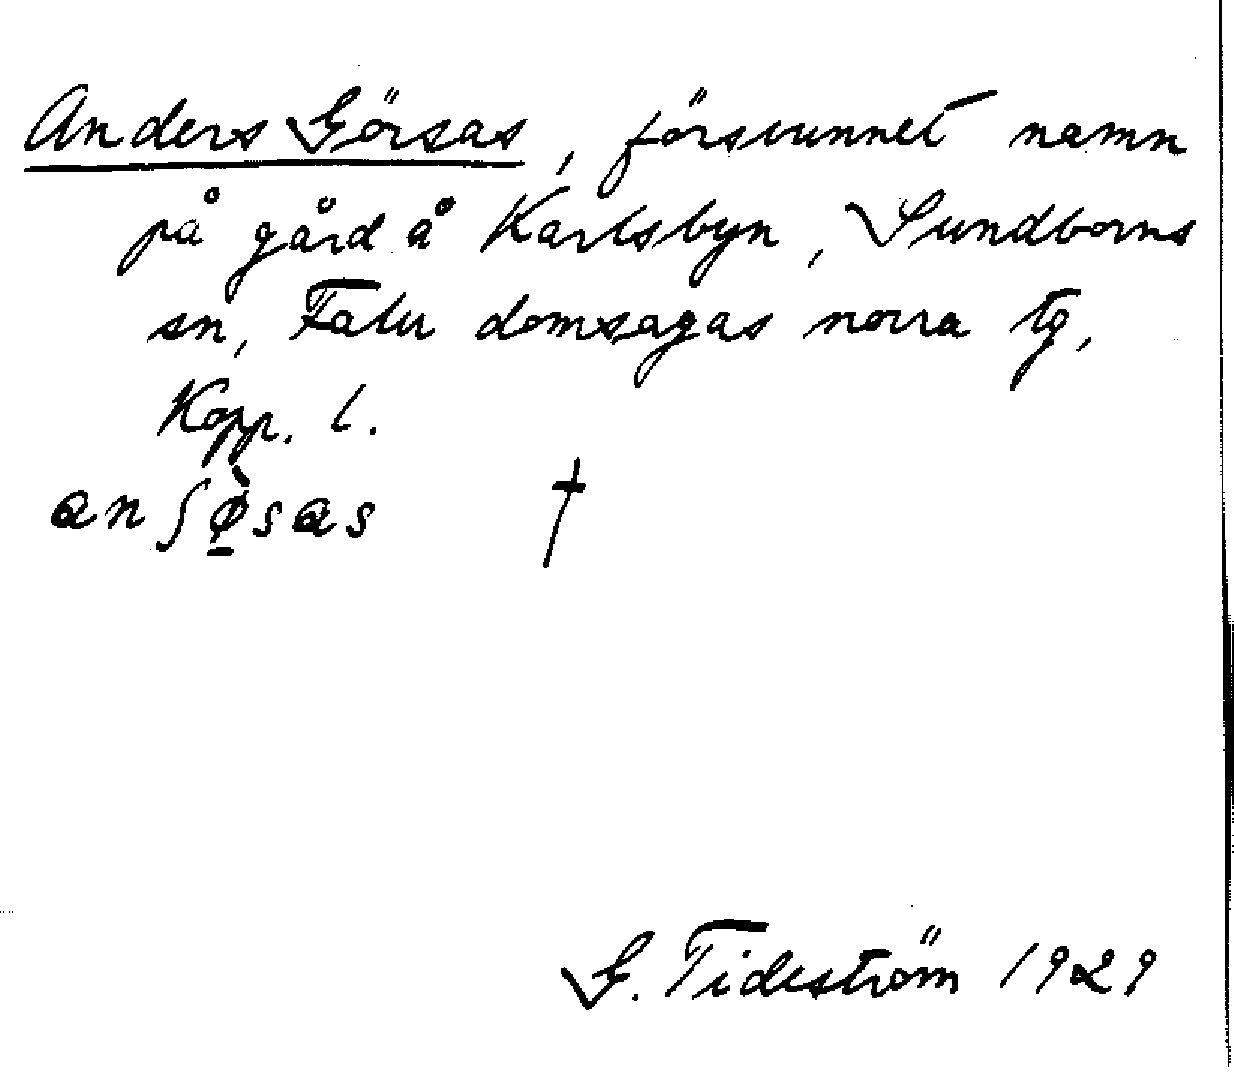 Anders Görsas, försvunnet namn
på gård å Karlsbyn, Sundborns
sn, Falu domsagas norra tg,
Kopp. l.
anʃø̠̀sas †
G. Tideström 1929